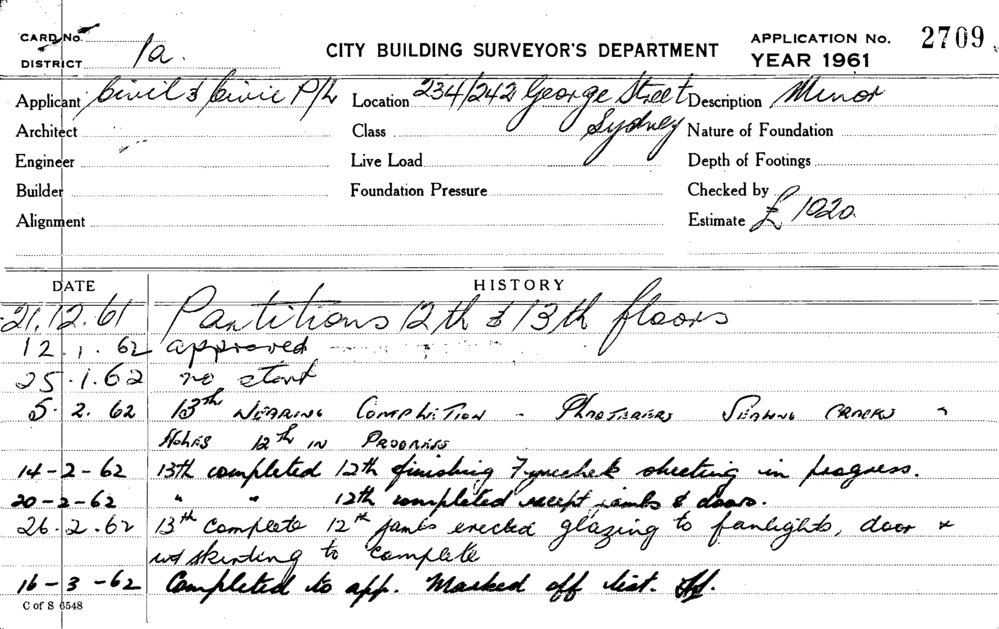 CARD No.
DISTRICT 1a.
CITY BUILDING SURVEYOR'S DEPARTMENT
APPLICATION No. 2709
YEAR 1961
Applicant Civil & Civic P/L Location 234/242 George Street Description Minor
Architect Class Sydney Nature of Foundation
Engineer Live Load Depth of Footings
Builder Foundation Pressure Checked by
Alignment Estimate £ 1020.
DATE HISTORY
21.12.61 Partitions 12th & 13th floors
12.1.62 approved
25.1.62 no start
5.2.62 13th NEARING COMPLETION - PLASTERERS SEALING CRACKS "
HOLES 12th IN PROGRESS
14-2-62 13th completed 12th finishing Fyrechek sheeting in progress.
20-2-62 " " 12th completed except jambs & doors.
26.2.62 13th complete 12th jambs erected glazing to fanlights, door &
skirting to complete
16-3-62 Completed to app. Marked off list.
C of S 6548